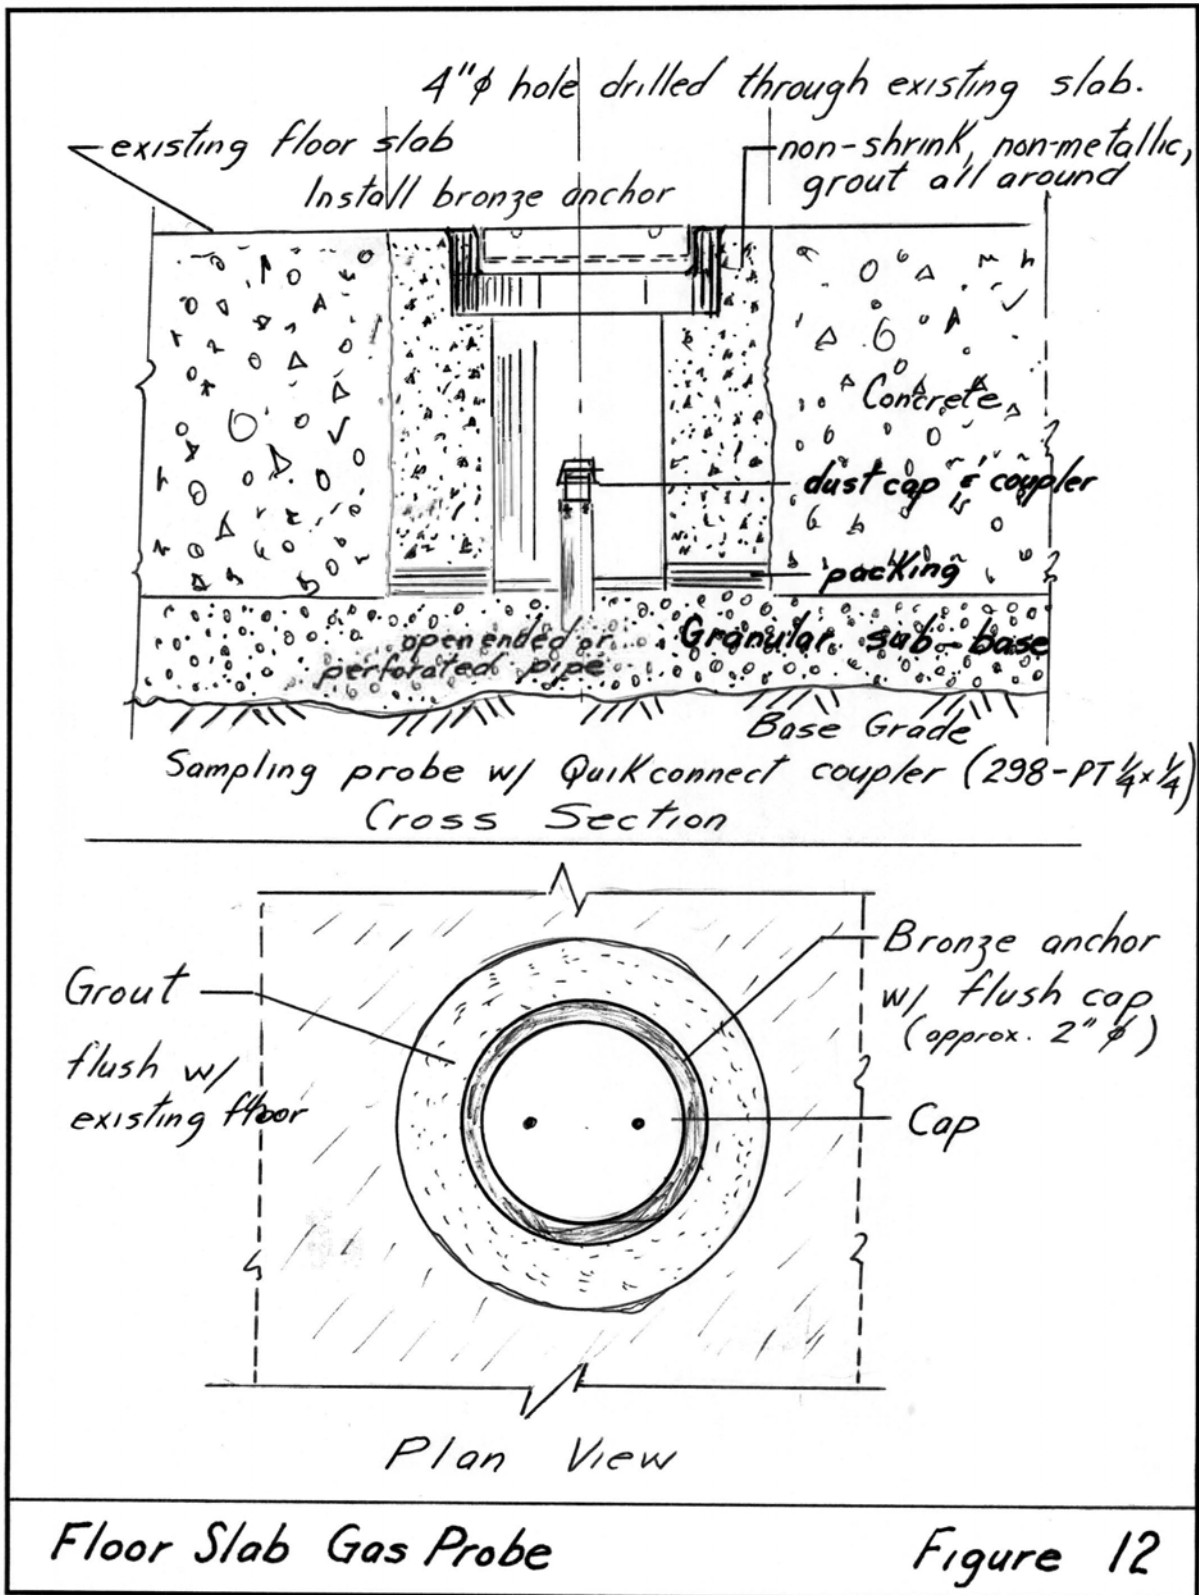 4"φ hole drilled through existing slab.
existing floor slab
non-shrink, non-metallic,
grout all around
Install bronze anchor
Concrete
dust cap & coupler
packing
open ended or
perforated pipe
Granular sub-base
Base Grade
Sampling probe w/ Quikconnect coupler (298-PT 1/4 x 1/4)
Cross Section
Grout
flush w/
existing floor
Bronze anchor
w/ flush cap
(approx. 2" φ)
Cap
Plan View
Floor Slab Gas Probe
Figure 12